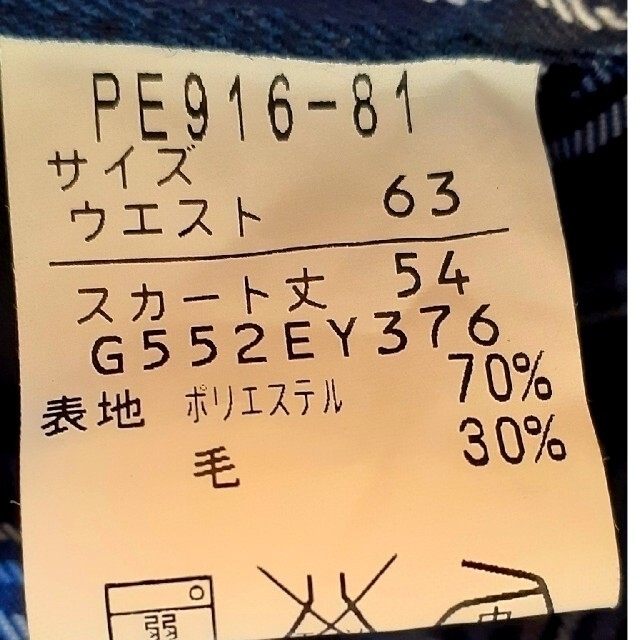 PE916-81
サイズ
ウエスト 63
スカート丈 54
G552EY376
表地 ポリエステル 70%
毛 30%
弱
中